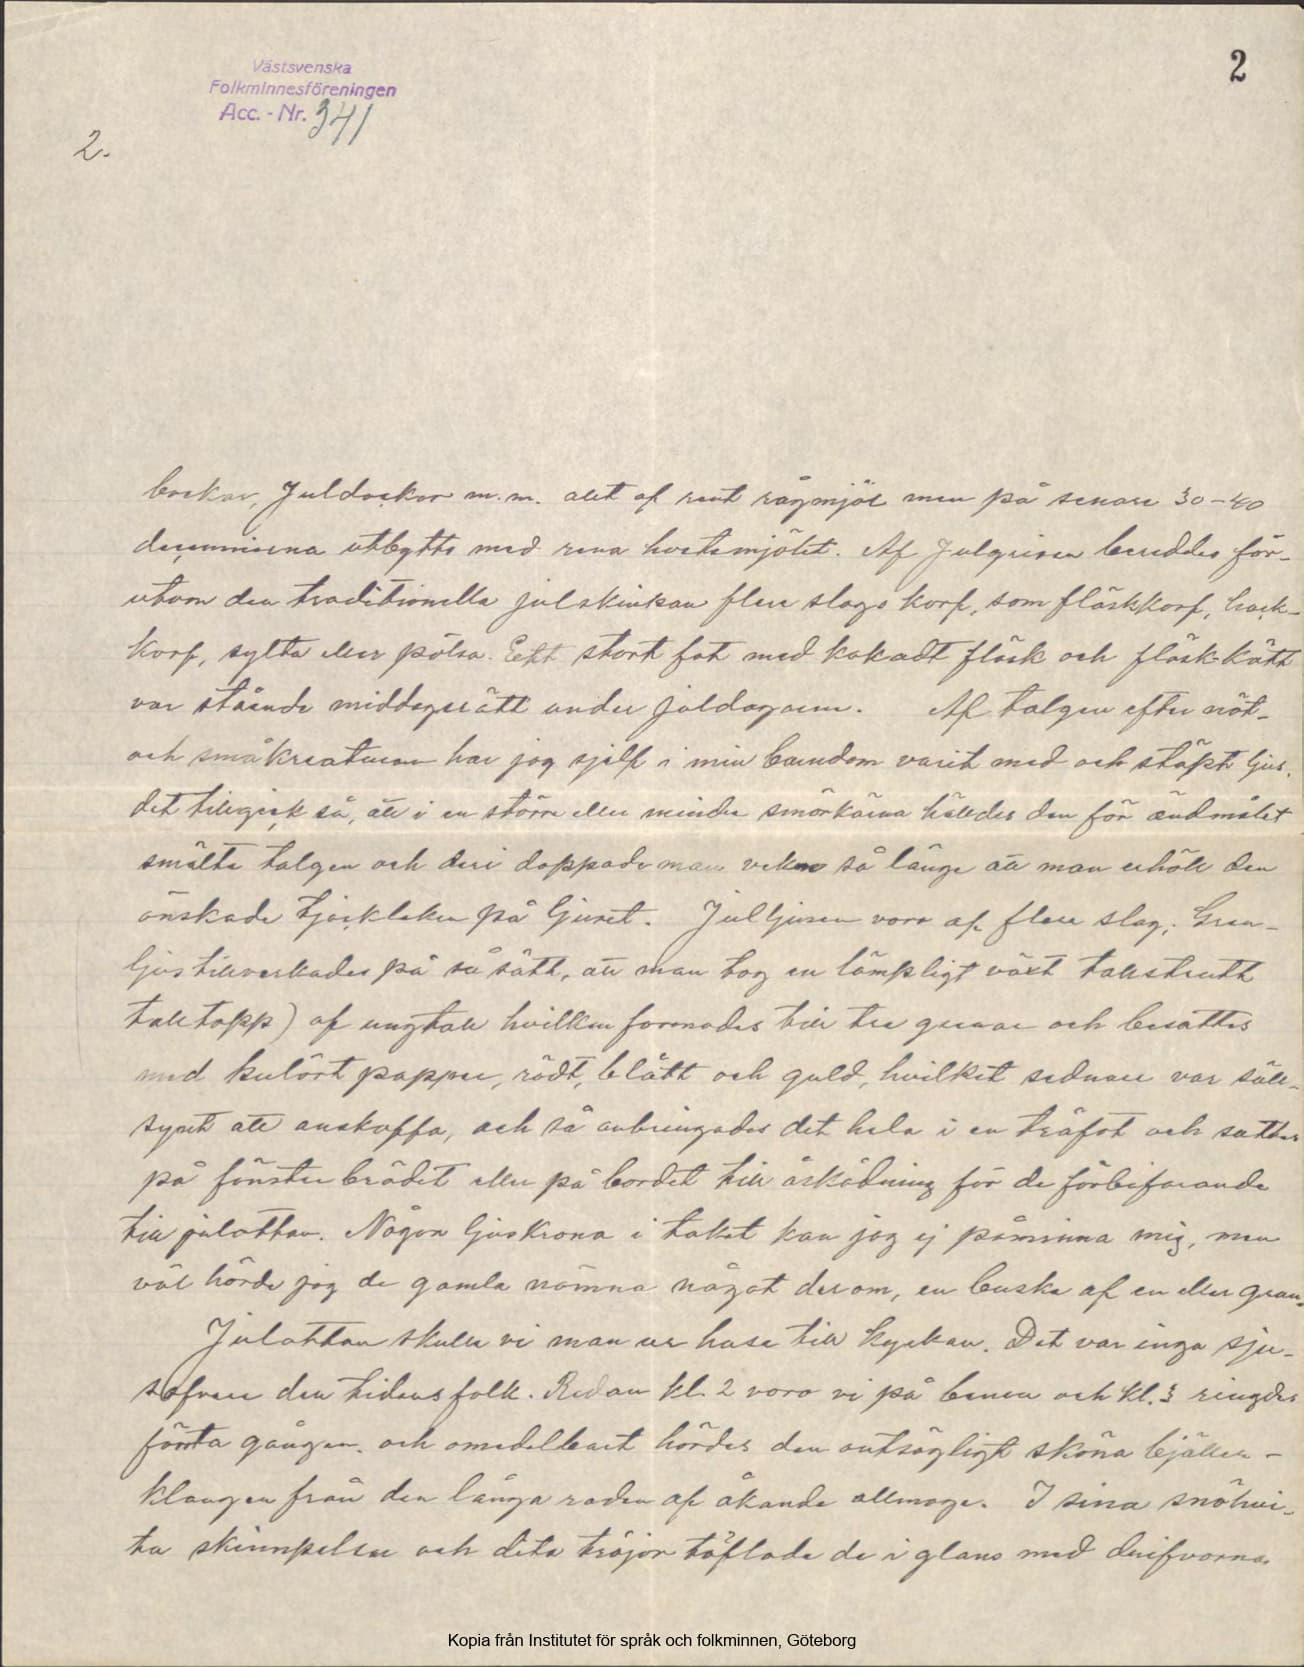 Västsvenska
Folkminnesföreningen
Acc. - Nr. 341
2
2.
bockar, Juldockor m.m. allt af rent rågmjöl men på senare 30-40
decennierna utbytts med rena hvetemjölet. Af Julgrisen bereddes för-
utom den traditionella julskinkan flere slags korf, som fläskkorf, hack-
korf, sylta eller pölsa. Ett stort fat med kokadt fläsk och fläsk-kött
var stående middagsrätt under juldagarne. Af talgen efter nöt-
och småkreaturen har jog sjelf i min barndom varit med och stöpt ljus,
det tillgick så, att i en större eller mindre smörkärna hälldes den för ändmålet
smälta talgen och deri doppade man veken så länge att man erhöll den
önskade tjockleken på ljuset. Julljusen voro af flere slag; Gren-
ljus tillverkades på så sätt, att man tog en lämpligt växt tallstrutt
talltopp) af ungtall hvilken formades till tre grenar och besattes
med kulört papper, rödt, blått och guld, hvilket sednare var säll-
synt att anskaffa, och så anbringades det hela i en träfot och sattes
på fönsterbrädet eller på bordet till åskådning för de förbifarande
till julottan. Någon ljuskrona i taket kan jag ej påminna mig, men
väl hörde jog de gamla nämna något derom, en buske af en eller gran.
Julottan skulle vi man ur huse till kyrkan. Det var inga sju-
sofvare den tidens folk. Redan kl. 2 voro vi på benen och kl. 3 ringdes
första gången. och omedelbart hördes den outsägligt sköna bjäller-
klangen från den långa raden af åkande allmoge. I sina snöhvi-
ta skinnpelsar och dito tröjor täflade de i glans med drifvorna.
Kopia från Institutet för språk och folkminnen, Göteborg